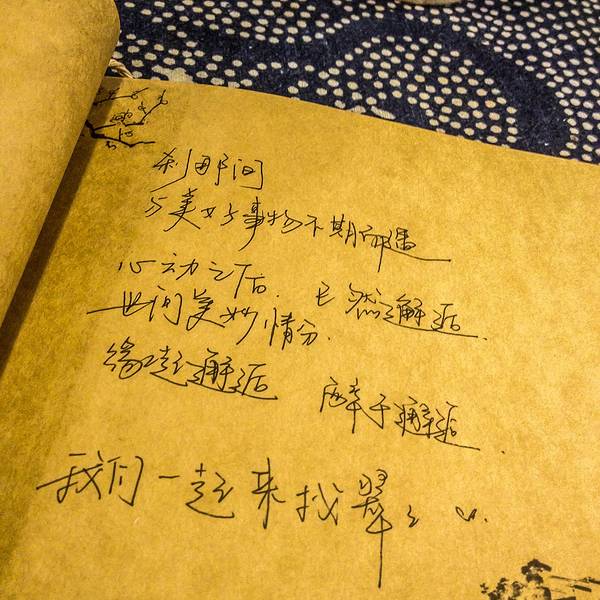 刹那间
与美好事物不期而遇
心动之后. 已然邂逅.
世间美妙情分.
缘起邂逅 醉于邂逅.
我们一起来找翠